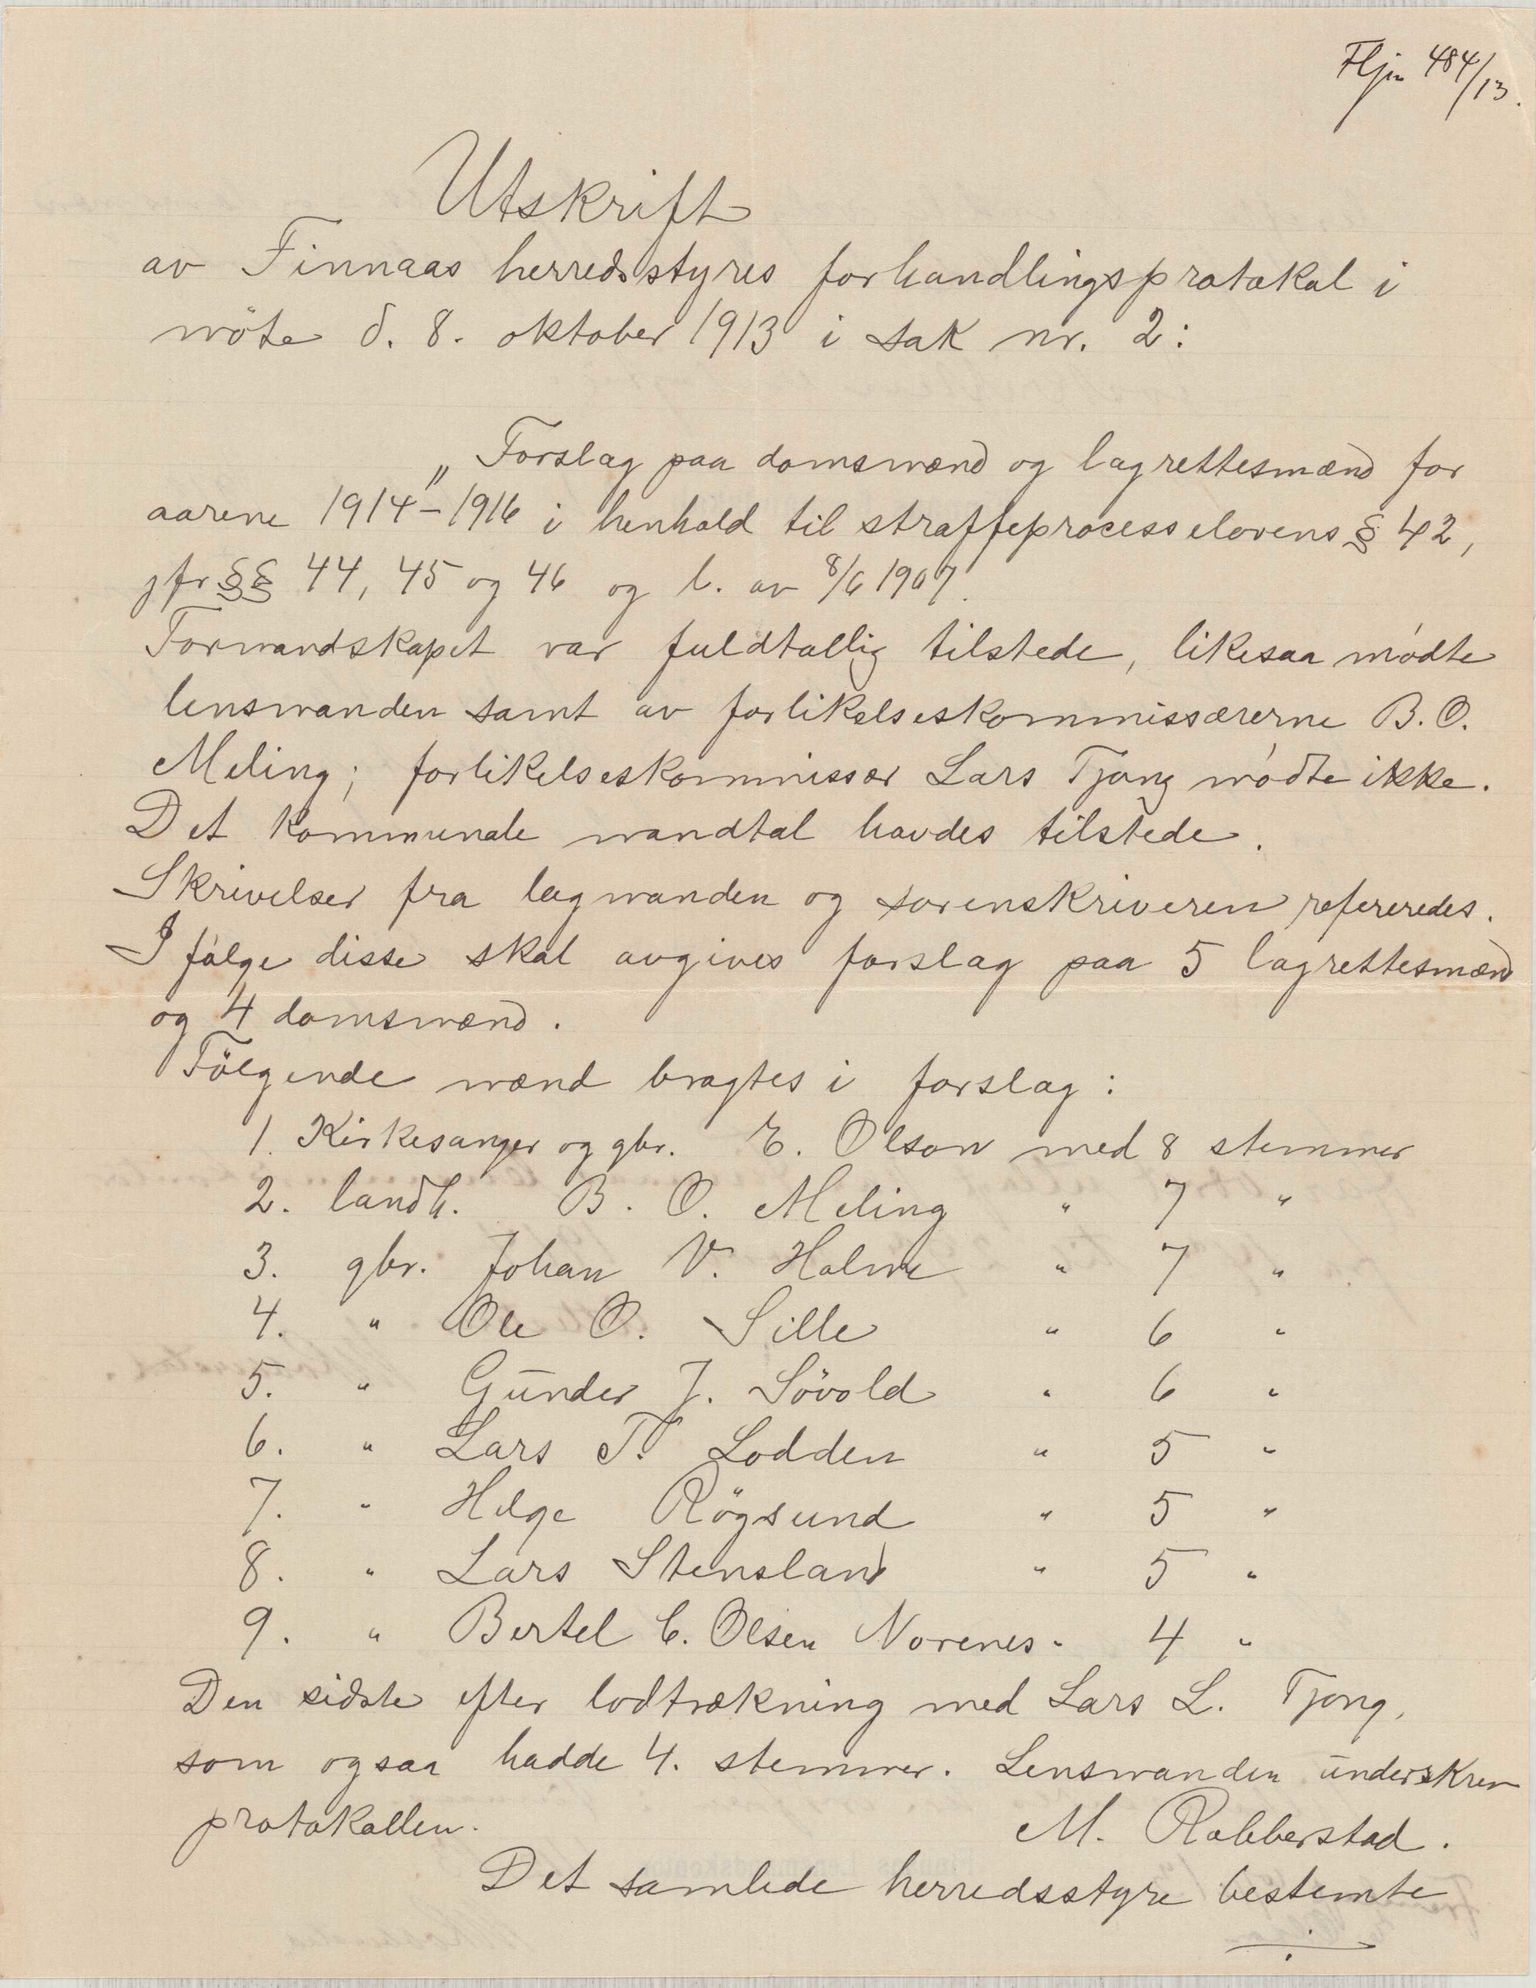 Fljn 484/13.
Utskrift
av Finnaas herredsstyres forhandlingsprotokol i
möte d. 8. oktober 1913 i sak nr. 2:
„Forslag paa domsmænd og lagrettesmænd for
aarene 1914–1916 i henhold til straffeprocesselovens § 42,
jfr §§ 44, 45 og 46 og l. av 8/6 1907.
Formandskapet var fuldtallig tilstede, likesaa mødte
lensmanden samt av forlikelseskommissærerne B. O.
Meling; forlikelseskommissær Lars Tjong mødte ikke.
Det kommunale mandtal havdes tilstede.
Skrivelser fra lagmanden og sorenskriveren refereredes.
I følge disse skal avgives forslag paa 5 lagrettesmænd
og 4 domsmænd.
Följende mænd bragtes i forslag:
1. Kirkesanger og gbr. E. Olson med 8 stemmer
2. landh. B. O. Meling " 7 "
3. gbr. Johan V. Holme " 7 "
4. " Ole O. Sille " 6 "
5. " Gunder J. Sövold " 6 "
6. " Lars T. Lodden " 5 "
7. " Helge Rögsund " 5 "
8. " Lars Stensland " 5 "
9. " Bertel C. Olsen Norenes " 4 "
Den sidste efter lodtrækning med Lars L. Tjong,
som ogsaa hadde 4. stemmer. Lensmanden underskrev
protokollen.
M. Robberstad.
Det samlede herredsstyre bestemte